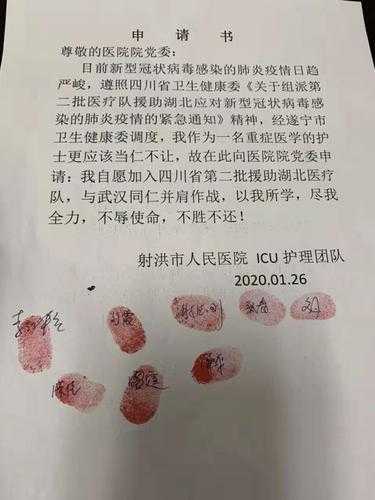 申 请 书
尊敬的医院院党委：
目前新型冠状病毒感染的肺炎疫情日趋
严峻，遵照四川省卫生健康委《关于组派第
二批医疗队援助湖北应对新型冠状病毒感
染的肺炎疫情的紧急通知》精神，经遂宁市
卫生健康委调度，我作为一名重症医学的护
士更应该当仁不让，故在此向医院院党委申
请：我自愿加入四川省第二批援助湖北医疗
队，与武汉同仁并肩作战，以我所学，尽我
全力，不辱使命，不胜不还！
射洪市人民医院 ICU 护理团队
2020.01.26